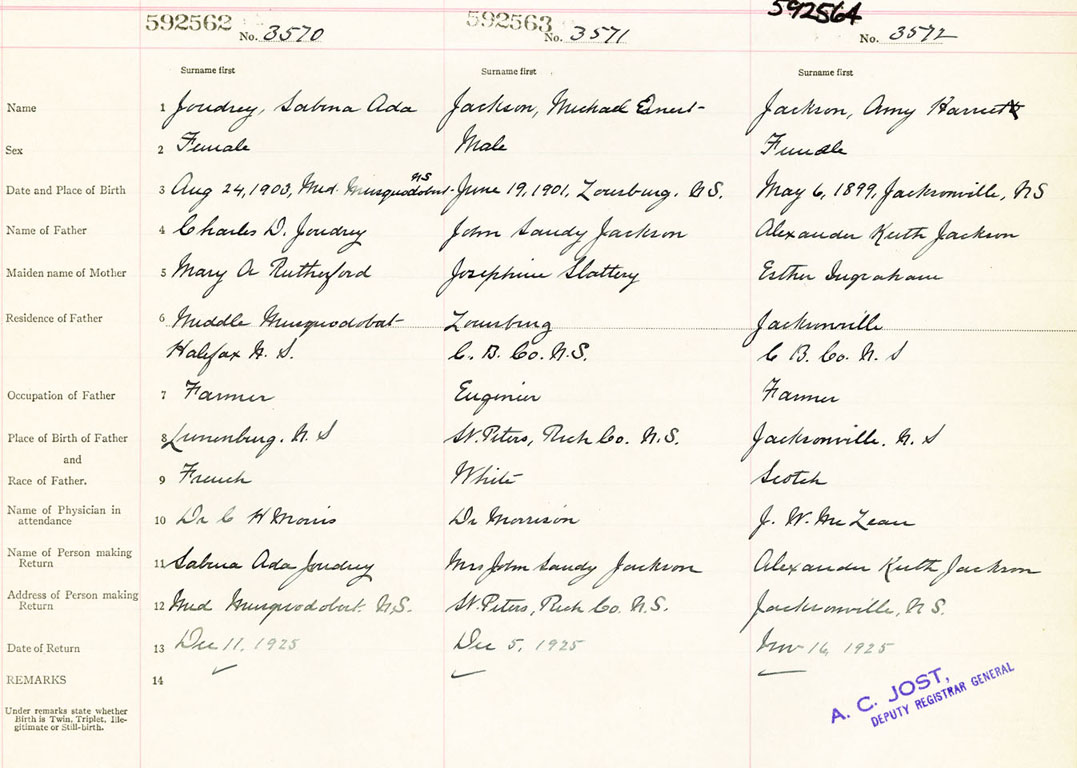 592562 592563 592564
No. 3570 No. 3571 No. 3572
Surname first Surname first Surname first
Name 1 Joudrey, Sabina Ada Jackson, Michael Ernest Jackson, Amy Harriett
Sex 2 Female Male Female
NS
Date and Place of Birth 3 Aug 24, 1903, Mid. Musquodobot June 19, 1901, Lousburg. N.S. May 6, 1899, Jacksonville, NS
Name of Father 4 Charles D. Joudrey John Sandy Jackson Alexander Keith Jackson
Maiden name of Mother 5 Mary A Rutherford Josephine Slattery Esther Ingraham
Residence of Father 6 Middle Musquodobot Lousburg Jacksonville
Halifax N. S. C. B. Co. N.S. C B. Co. N. S
Occupation of Father 7 Farmer Engenier Farmer
Place of Birth of Father 8 Lunenburg. N. S St. Peters, Rich Co. N.S. Jacksonville. N. S
and
Race of Father. 9 French White Scotch
Name of Physician in
attendance 10 Dr C H Morris Dr Morrison J. W. McLean
Name of Person making
Return 11 Sabina Ada Joudrey Mrs John Sandy Jackson Alexander Keith Jackson
Address of Person making
Return 12 Mid Musquodobot. N.S. St. Peters, Rich Co. N.S. Jacksonville, N.S.
Date of Return 13 Dec 11, 1925 Dec 5, 1925 Nov 16, 1925
REMARKS 14
Under remarks state whether
Birth is Twin, Triplet, Ille-
gitimate or Still-birth.
A. C. JOST,
DEPUTY REGISTRAR GENERAL